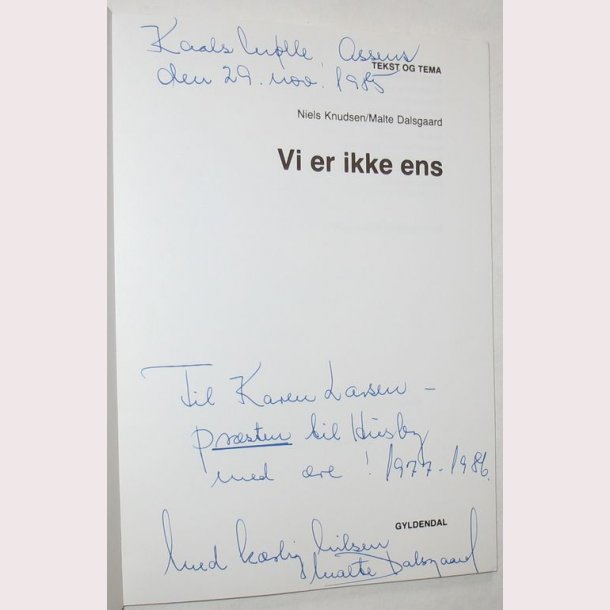 Kaals Mølle, Assens
den 29. nov. 1985
TEKST OG TEMA
Niels Knudsen/Malte Dalsgaard
Vi er ikke ens
Til Karen Larsen –
præsten til Husby
med ære! 1977-1986.
GYLDENDAL
Med kærlig hilsen
Malte Dalsgaard